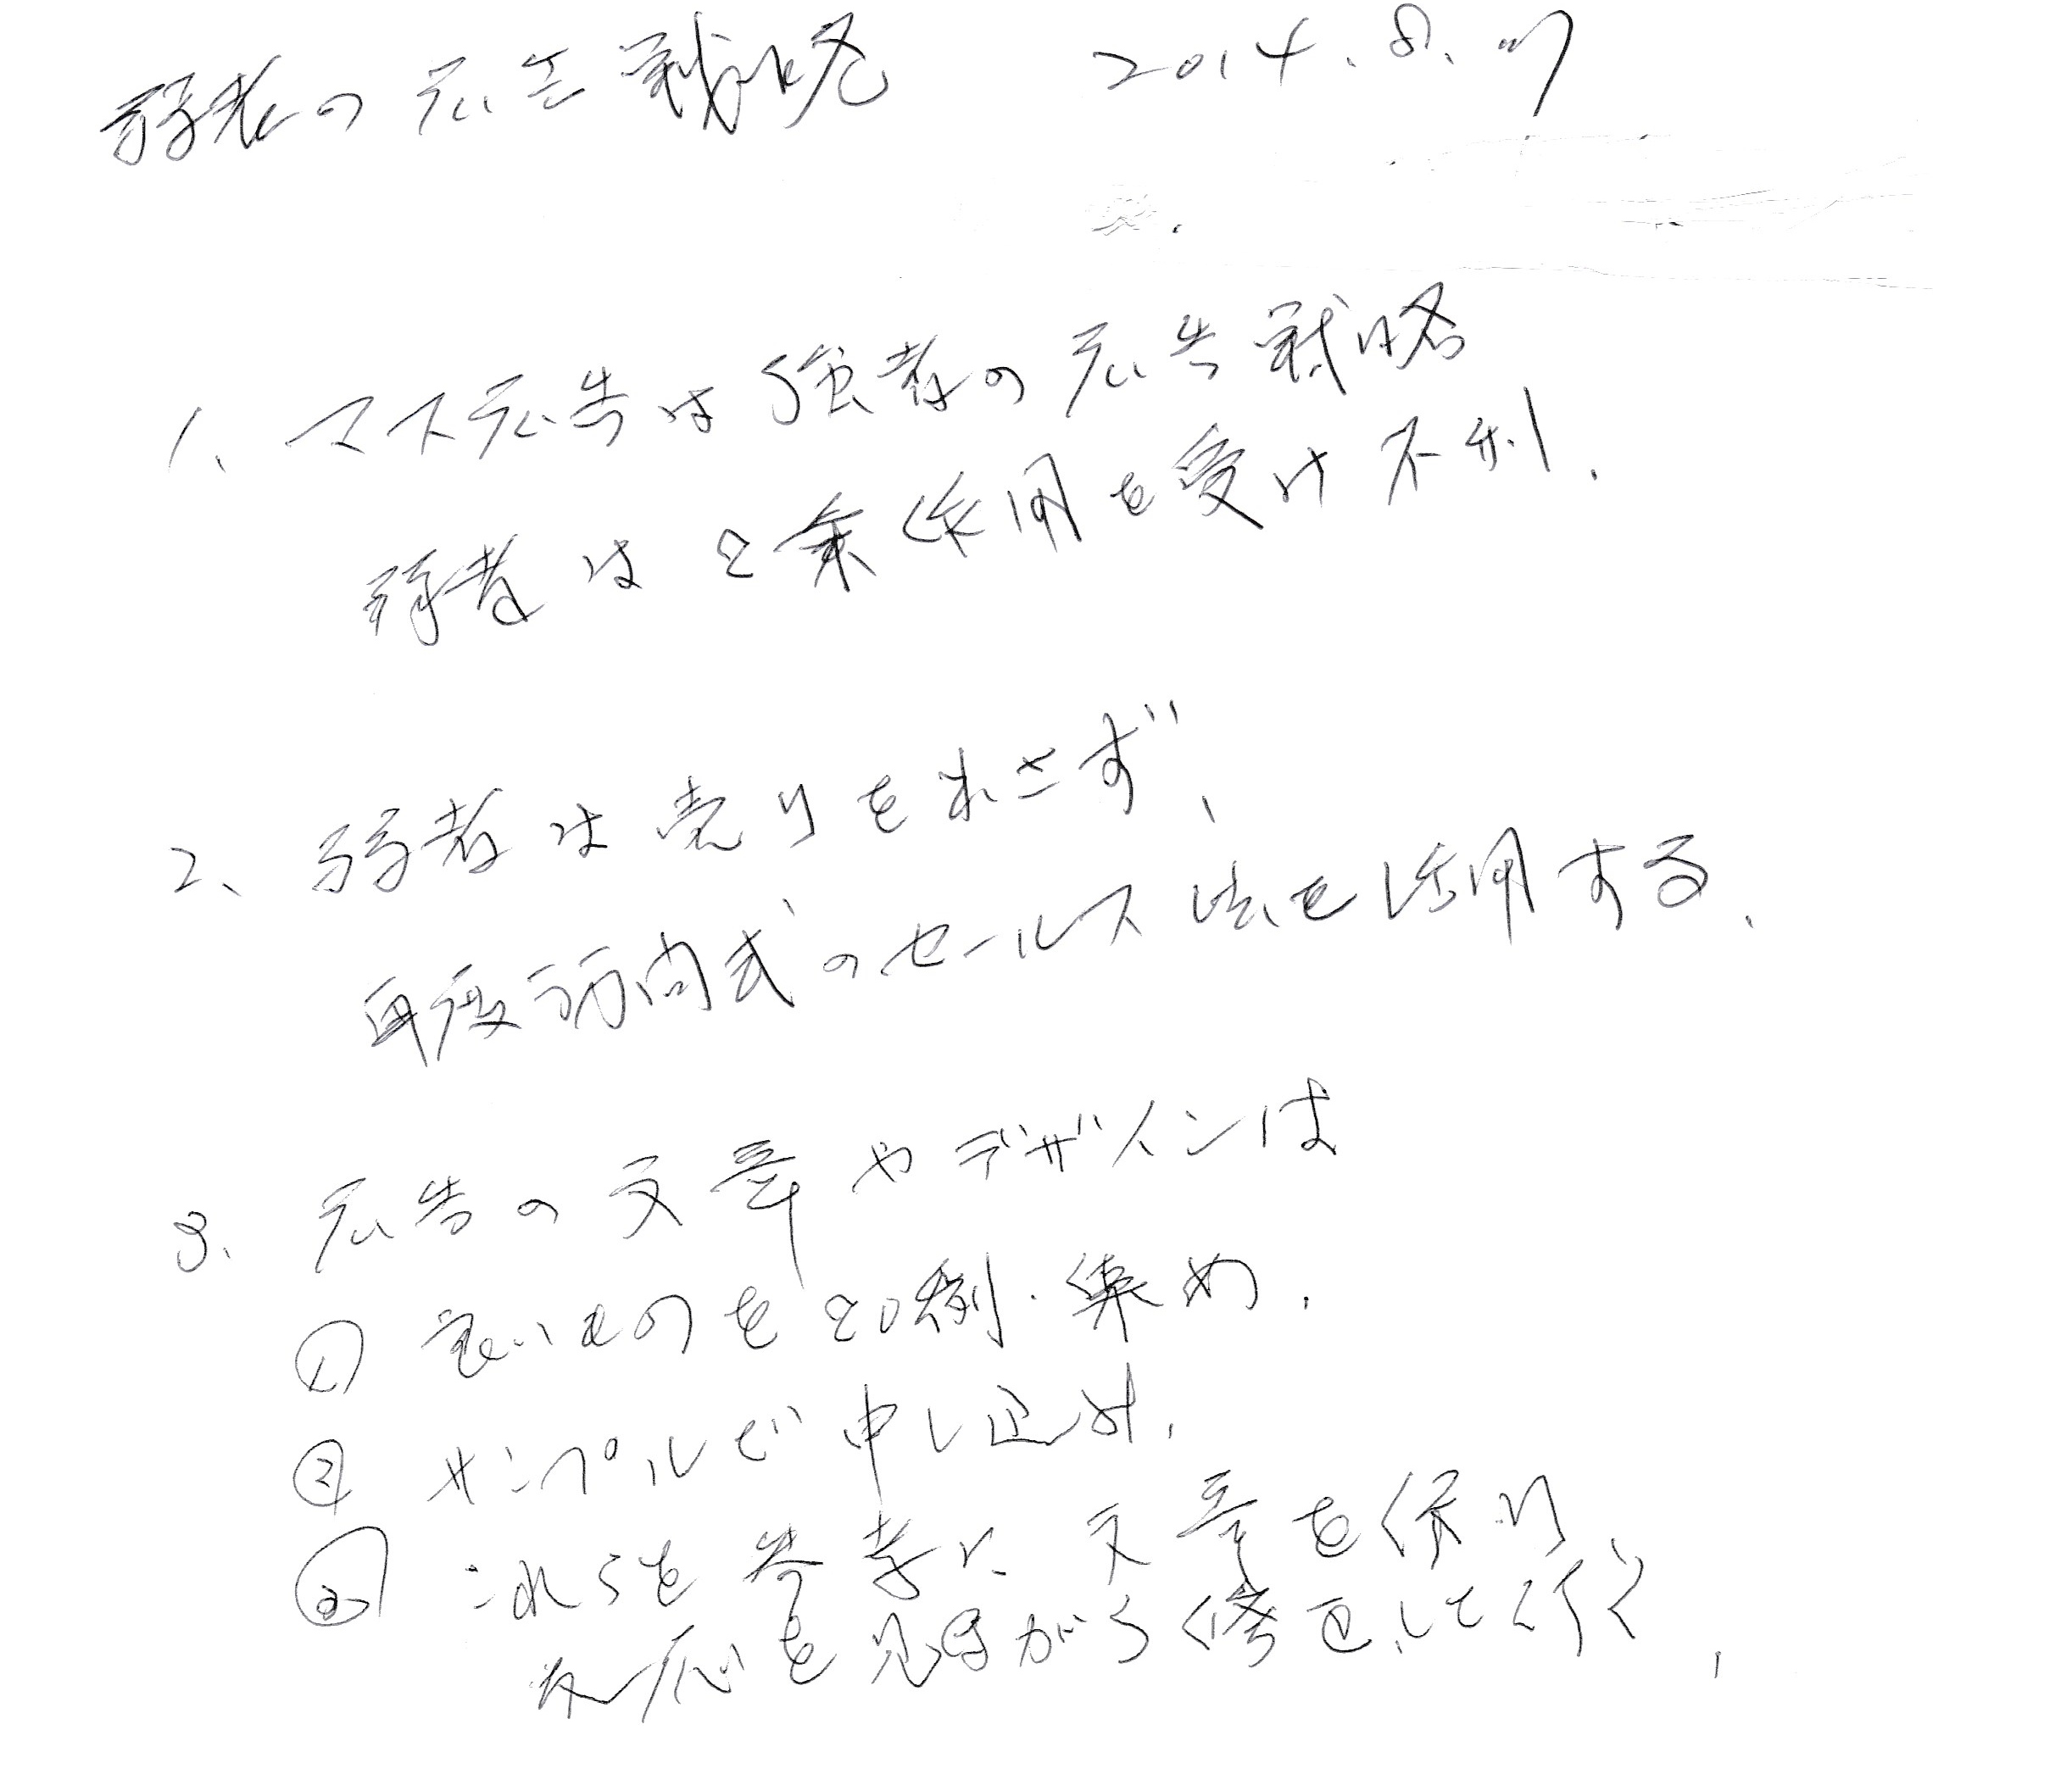 弱者の広告戦略 2014.8.7
1、マス広告は強者の広告戦略
弱者は2乗作用を受け不利.
2、弱者は売りを出さず、
再度訪問式のセールス法を活用する、
3、広告の文章やデザインは
① 良いものを20例.集め.
② サンプルで申し込み.
③ これらを参考に文章を作り
反応を見ながら修正して行く、